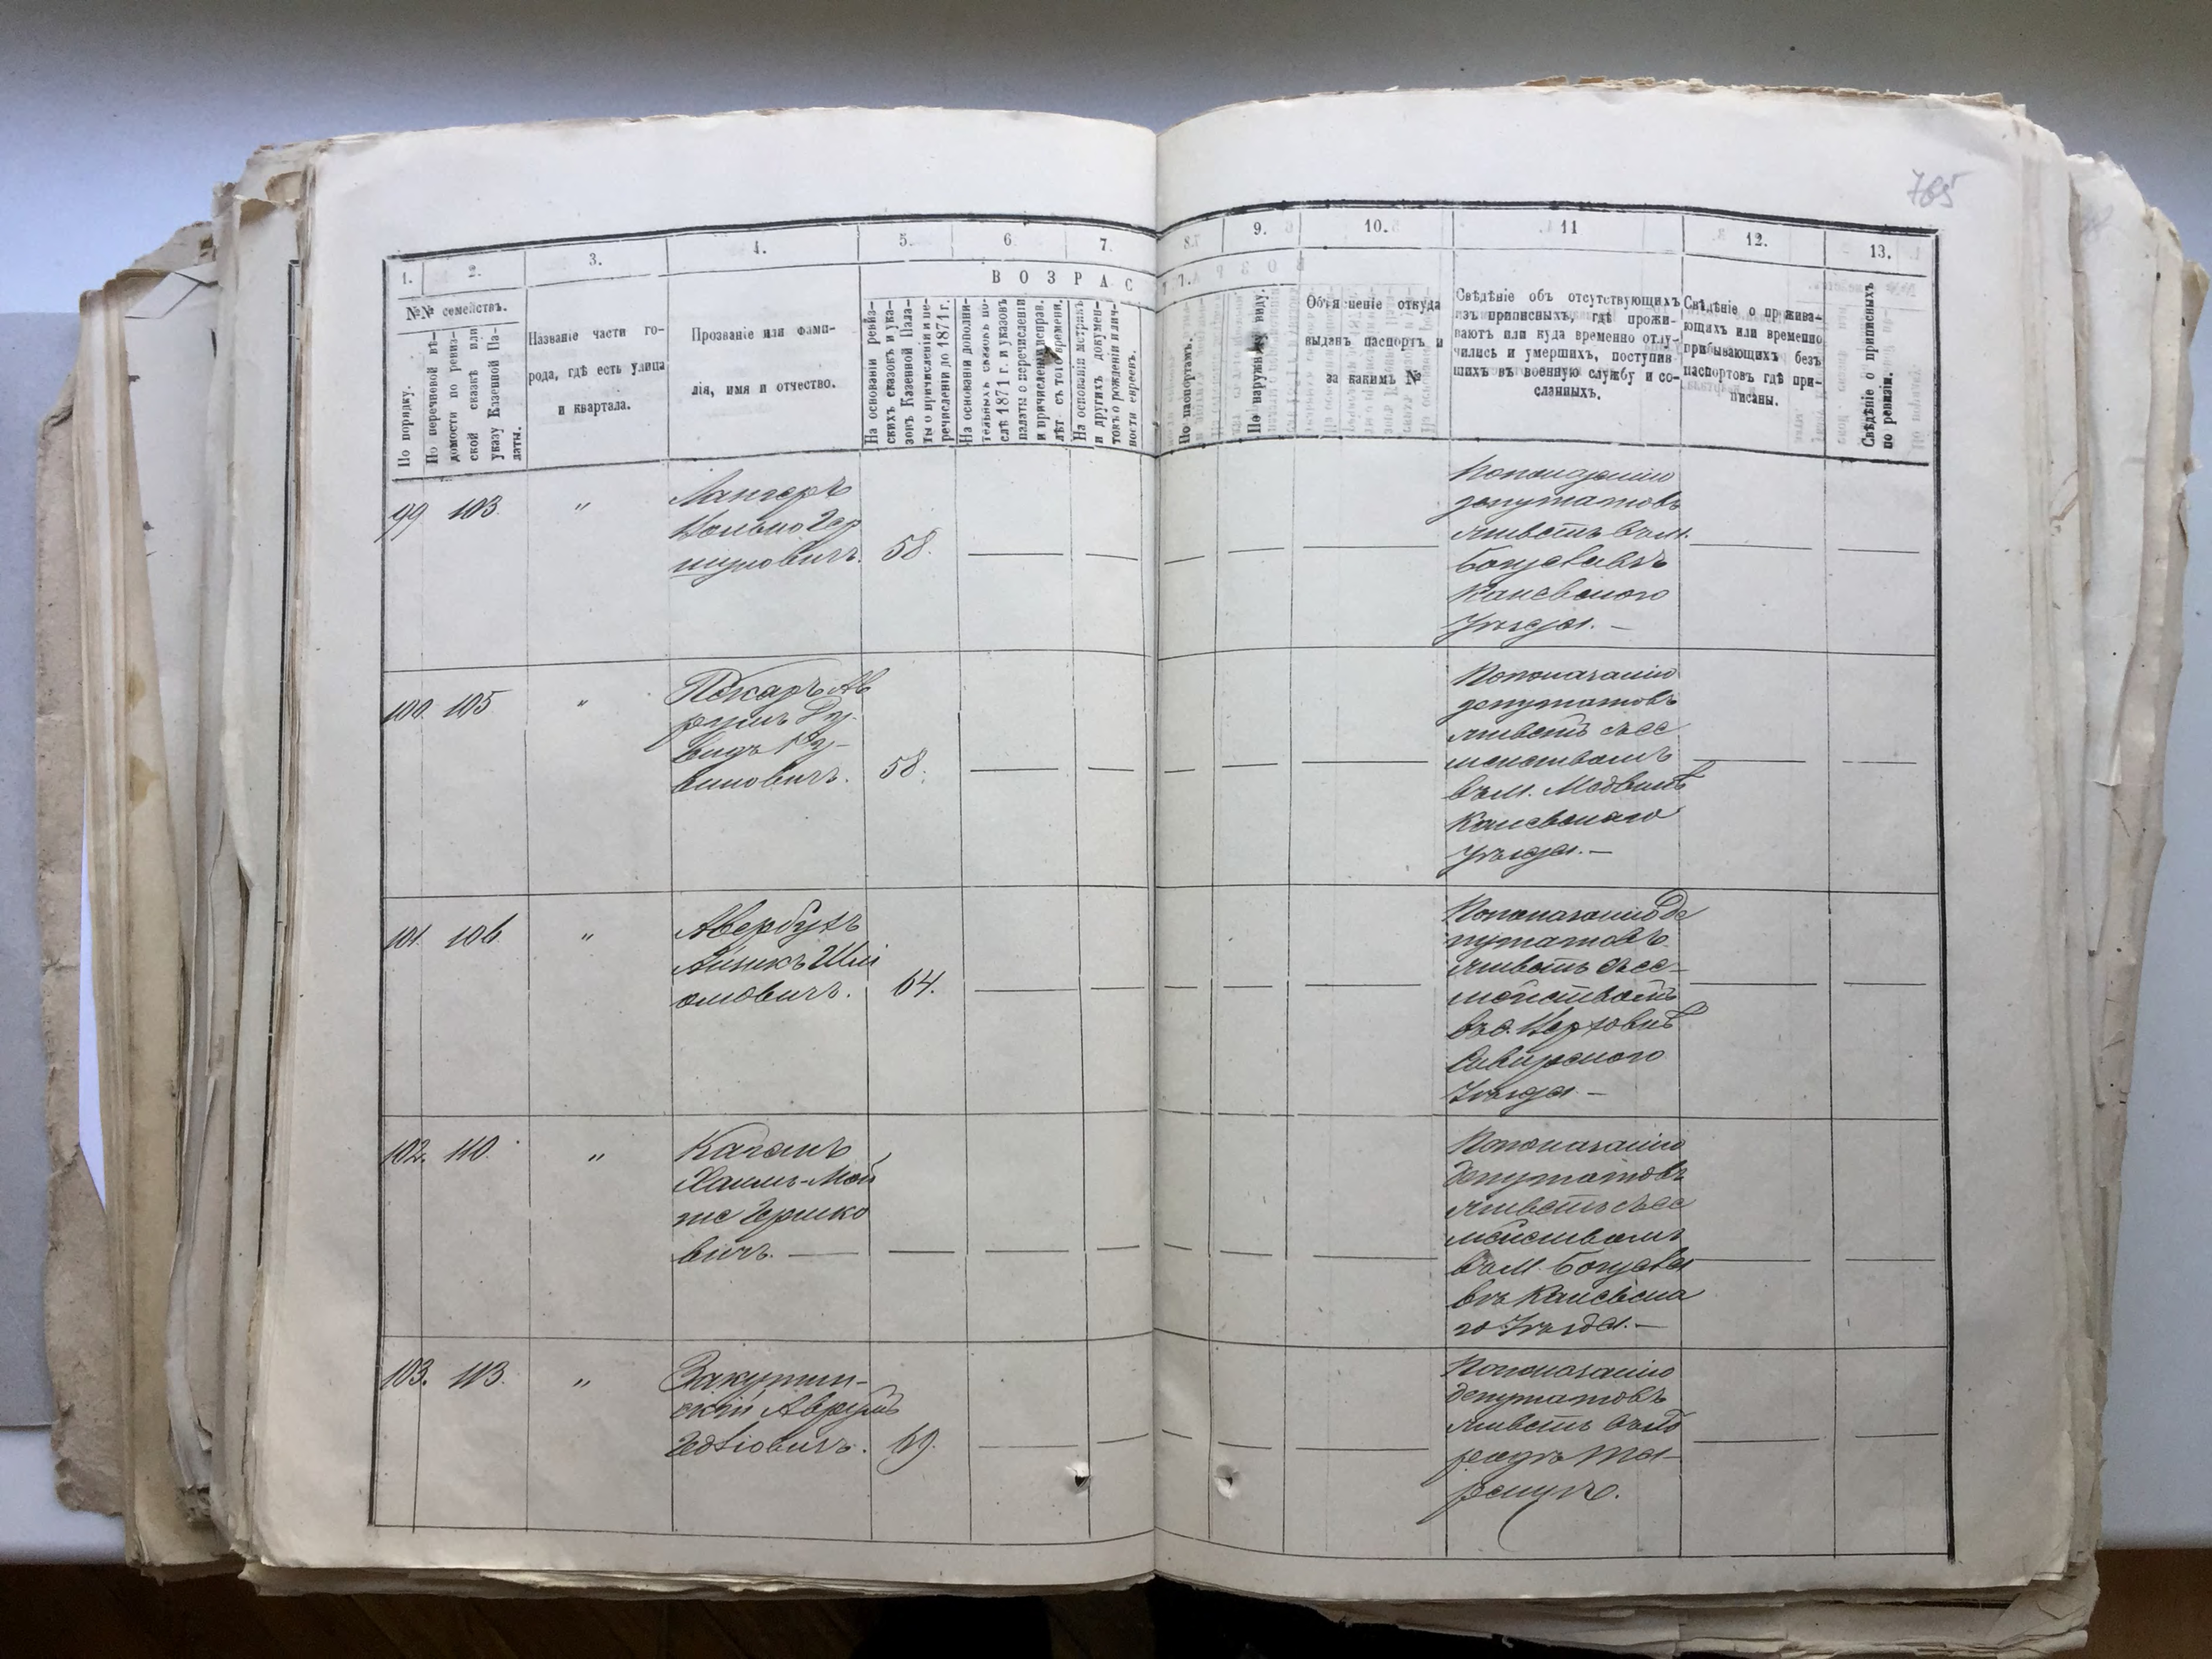 765
1.
2.
3.
4.
5.
6.
7.
8.
9.
10.
11
12.
13.
№№ семействъ.
По порядку.
По перечневой вѣ-
домости по ревиз-
ской сказкѣ или
указу Казенной Па-
латы.
Названіе части го-
рода, гдѣ есть улица
и квартала.
Прозваніе или фами-
лія, имя и отчество.
ВОЗРАС
На основаніи ревиз-
скихъ сказокъ и ука-
зовъ Казенной Пала-
ты о причисленіи и пе-
речисленіи до 1871 г.
На основаніи дополни-
тельныхъ сказокъ по-
слѣ 1871 г. и указовъ
палаты о перечисленіи
и причисленіи исправ.
лѣт съ того времени.
На основаніи метрикъ
и другихъ докумен-
товъ о рожденіи и лич-
ности евреевъ.
По паспортамъ.
По наружному виду.
Объясненіе откуда
выданъ паспортъ и
за какимъ №
Свѣдѣніе объ отсутствующихъ
изъ приписныхъ, гдѣ прожи-
ваютъ или куда временно отлу-
чились и умершихъ, поступив-
шихъ въ военную службу и со-
сланныхъ.
Свѣдѣніе о прожива-
ющихъ или временно
прибывающихъ безъ
паспортовъ гдѣ при-
писаны.
Свѣдѣніе о приписныхъ
по ревизіи.
99 103. "
Лангеръ
Гер
шуновичъ. 58.
депутатовъ
живетъ въ м.
Богуславѣ
Каневского
Уѣзда. —
100. 105 "
Пекаръ Ав
румъ Ду-
видъ
виновичъ. 58.
По показанію
депутатовъ
живетъ съ се
мействомъ
въ м. Медвинѣ
Каневского
Уѣзда. —
101. 106 "
Авербухъ
Айзикъ Шлі
омовичъ. 64.
По показанію Де
путатовъ
живетъ съ се-
мействомъ
въ с.
Сквирского
Уѣзда —
102. 110. "
Каганъ
Хаимъ-Мой
ше Гершко
вичъ. —
По показанію
Депутатовъ
живетъ съ се
мействомъ
въ м. Богусла
вѣ Каневска
го Уѣзда. —
103. 113. "
Закутин-
скій Аврумъ
вичъ. 69.
По показанію
депутатовъ
живетъ въ го
родѣ Та-
ращѣ.